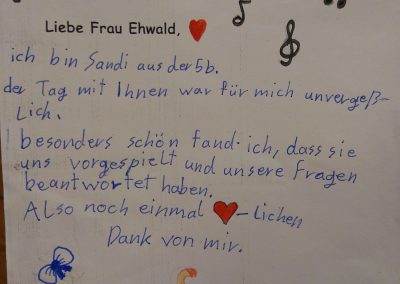 Liebe Frau Ehwald,
ich bin Sandi aus der 5b.
der Tag mit Ihnen war für mich unvergeß-
Lich.
besonders schön fand ich, dass sie
uns vorgespielt und unsere Fragen
beantwortet haben.
Also noch einmal ❤-Lichen
Dank von mir.